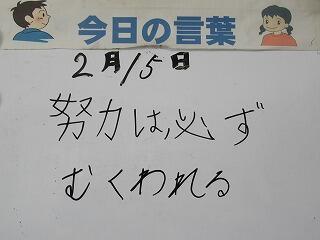 今日の言葉
2月15日
努力は必ず
むくわれる